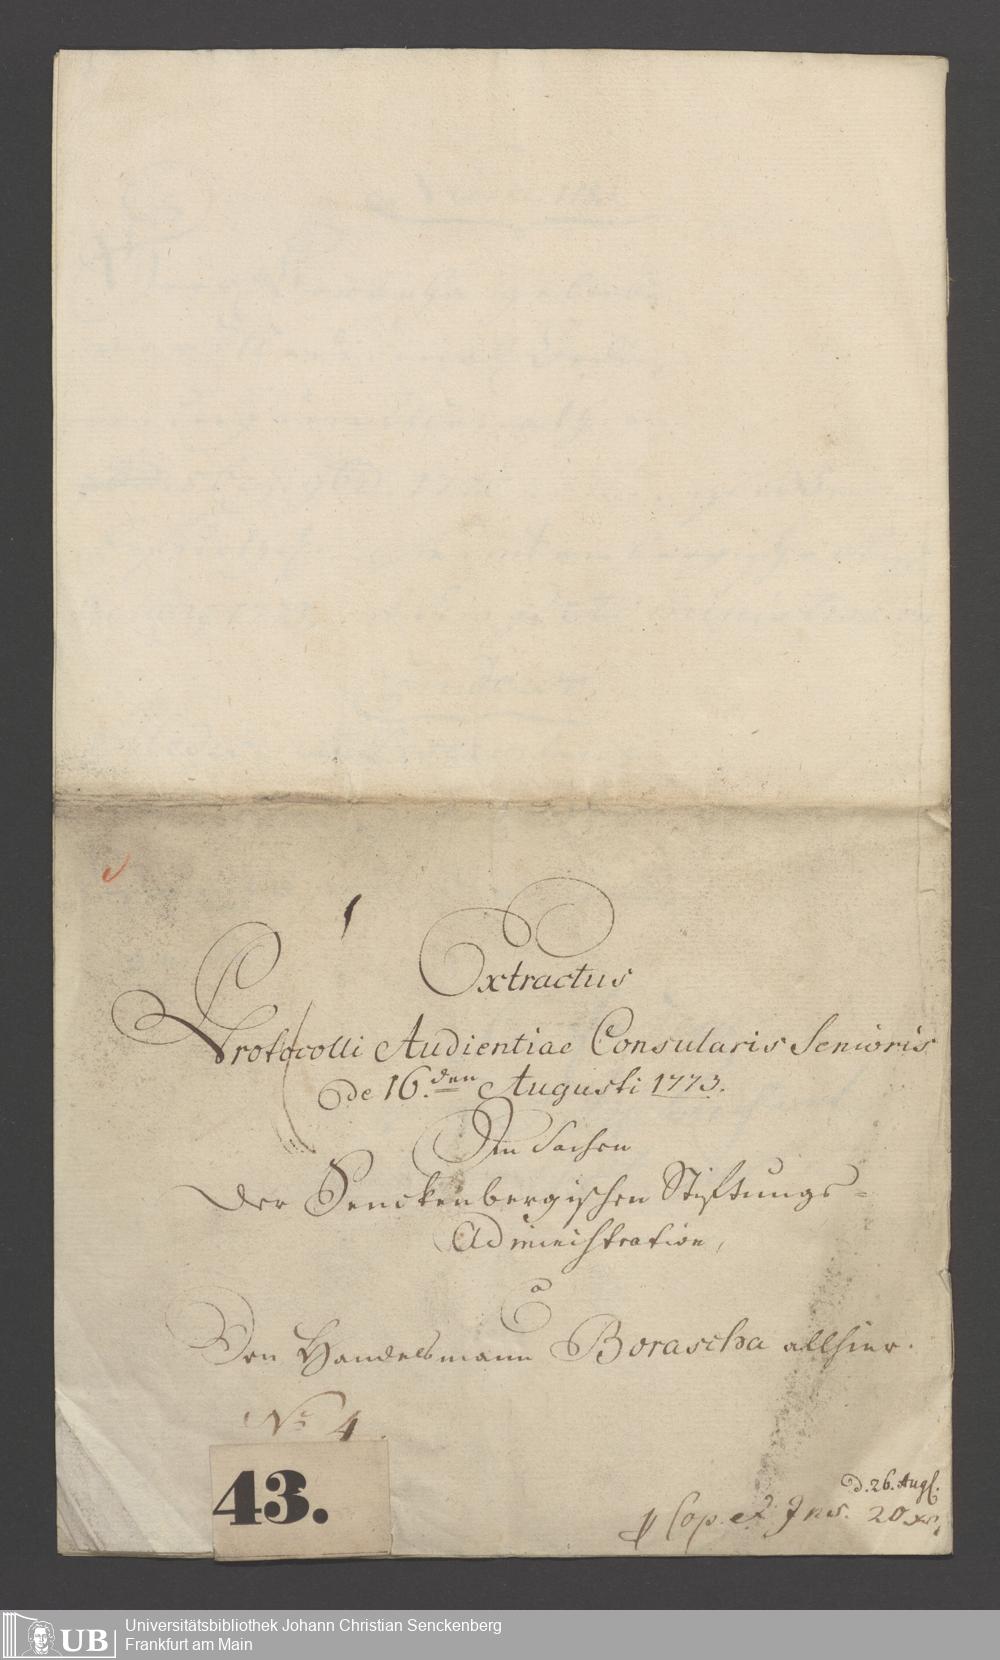 Extractus
Protocolli Audientiae Consularis Senioris
de 16.den Augusti 1773.
In Sachen
Der Senckenbergischen Stiftungs-
Administration,
a
Den Handelsmann Borascha allhier.
No 4
43.
d. 26. Aug.
p Cop. et Ins. 20 xr.
UB
Universitätsbibliothek Johann Christian Senckenberg
Frankfurt am Main